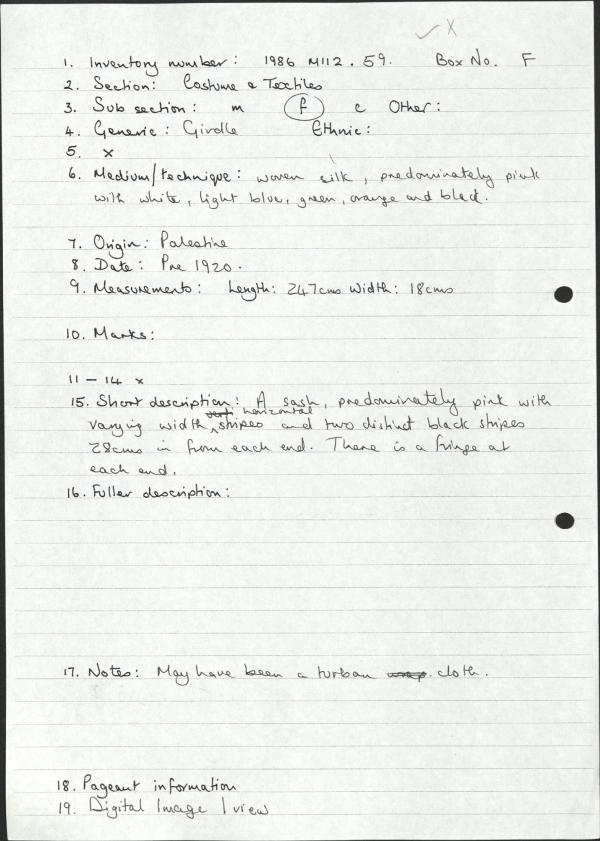 1. Inventory number: 1986 M112.59. Box No. F
2. Section: Costume & Textiles
3. Sub section: m f c Other:
4. Generic: Girdle Ethnic:
5. x
6. Medium/technique: woven silk, predominately pink
with white, light blue, green, orange and black.
7. Origin: Palestine
8. Date: Pre 1920.
9. Measurements: Length: 247cms Width: 18cms
10. Marks:
11 - 14 x
15. Short description: A sash, predominately pink with
varying width horizontal stripes and two distinct black stripes
28cms in from each end. There is a fringe at
each end.
16. Fuller description:
17. Notes: May have been a turban cloth.
18. Pageant information
19. Digital Image 1 view